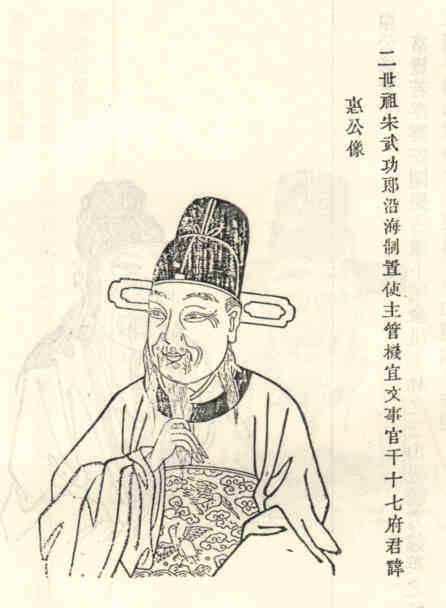 二世祖朱武功郎沿海制置使主管機宜文事官干十七府君諱
惠公像